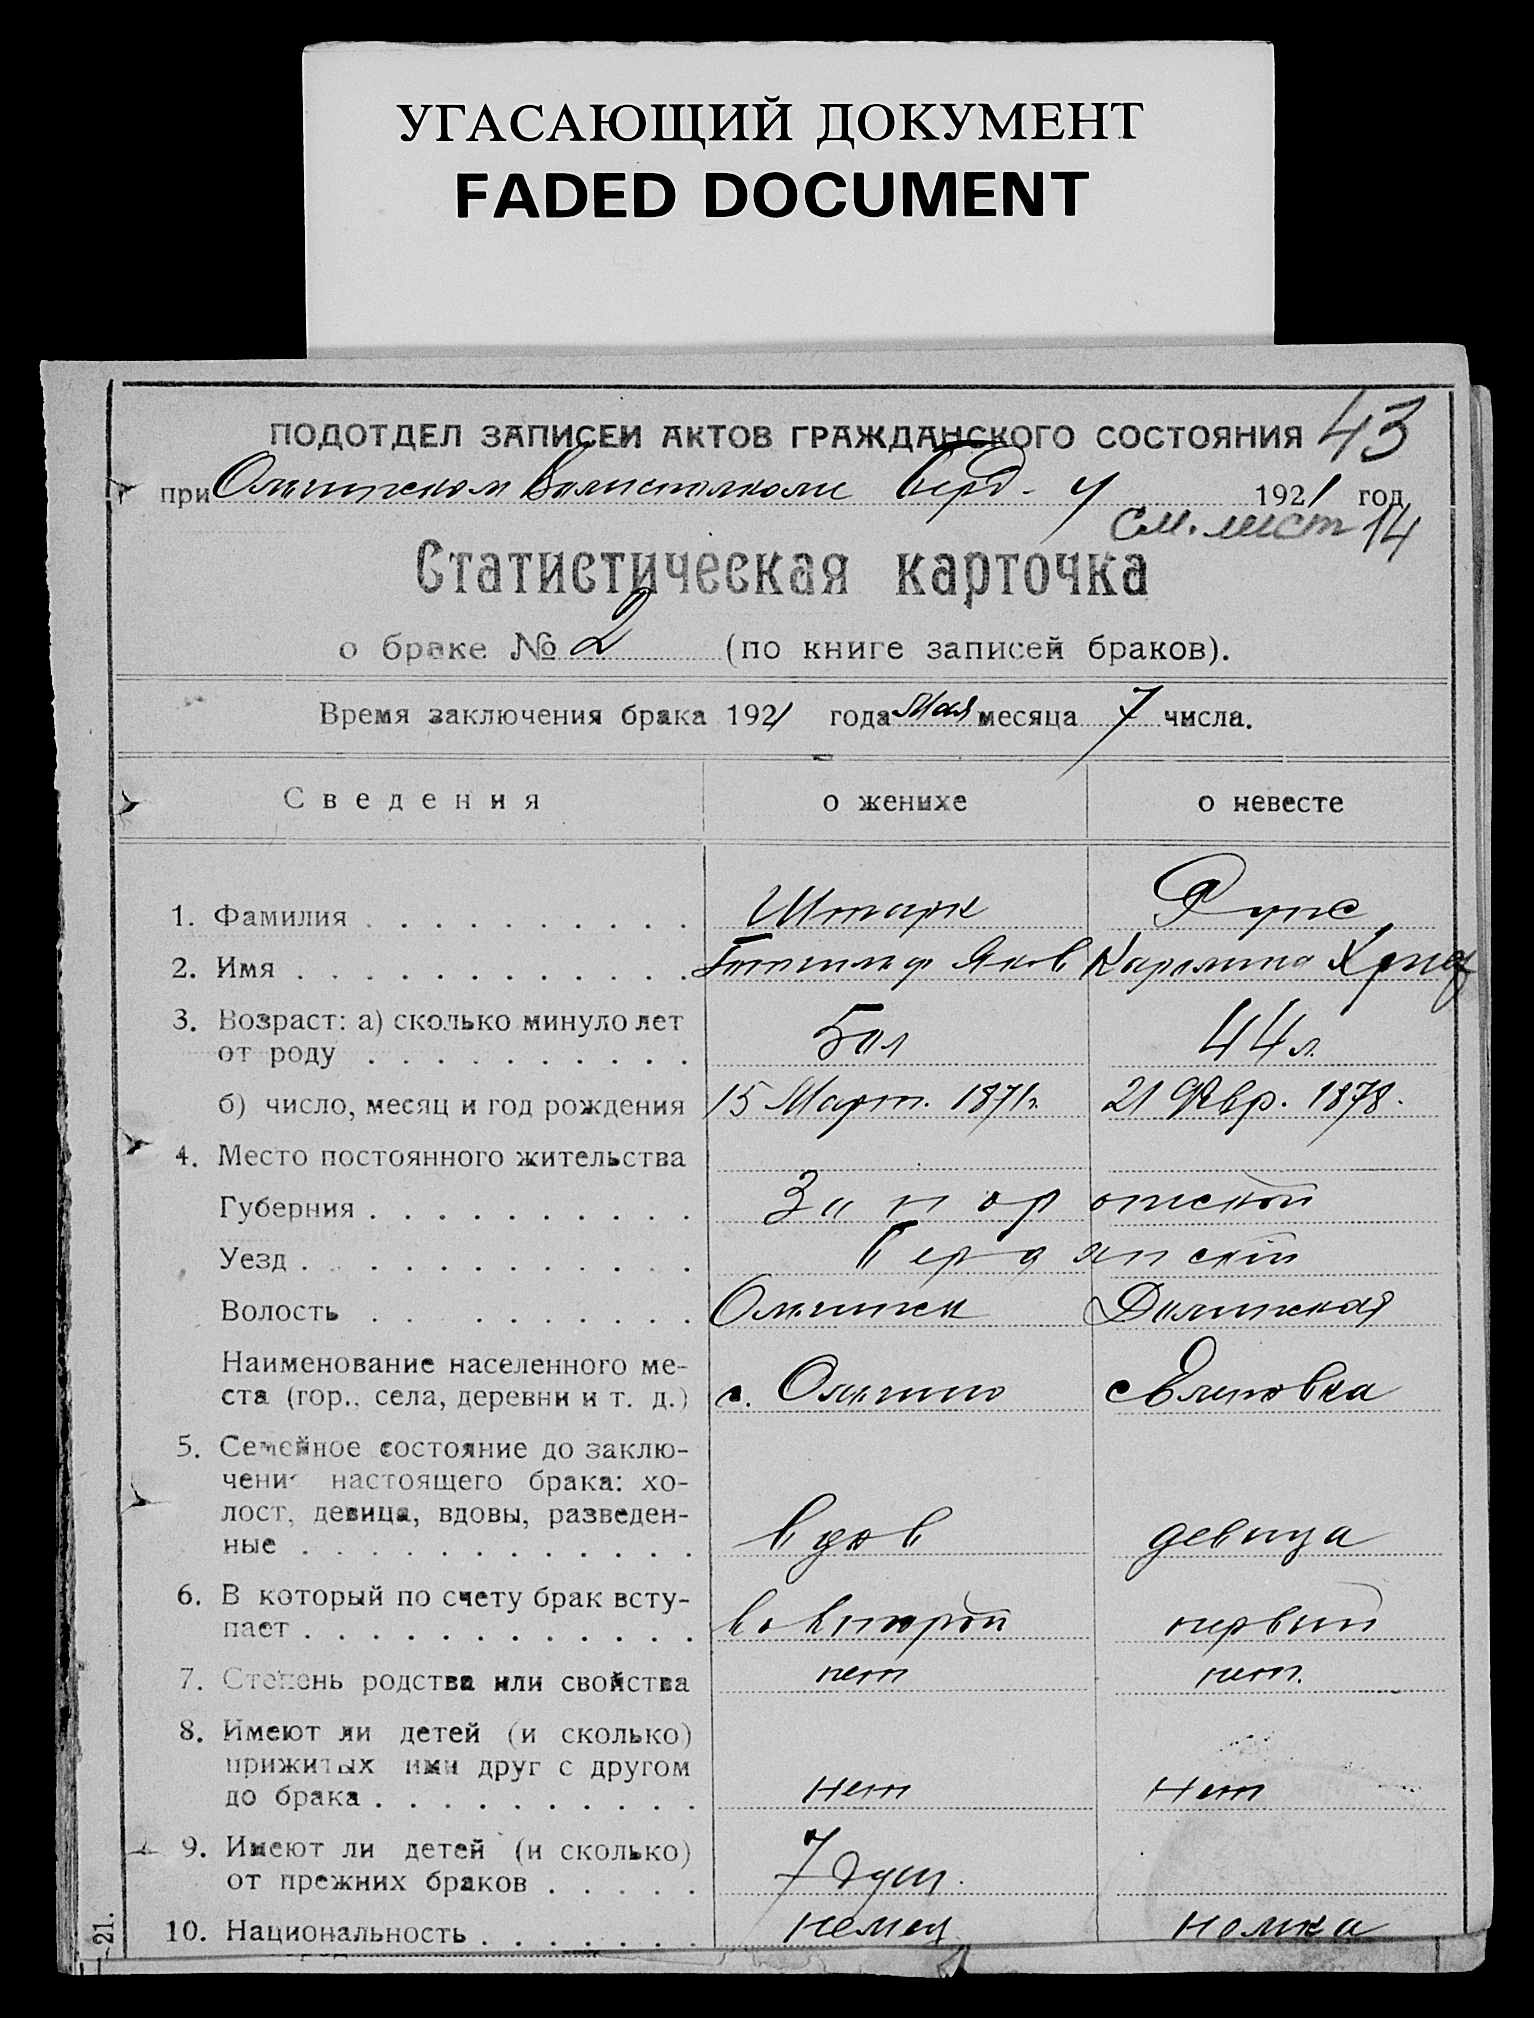 УГАСАЮЩИЙ ДОКУМЕНТ
FADED DOCUMENT
43
ПОДОТДЕЛ ЗАПИСЕЙ АКТОВ ГРАЖДАНСКОГО СОСТОЯНИЯ
при Ольгинском Волисполкоме Берд. у 1921 год
См. лист 14
Статистическая карточка
о браке № 2 (по книге записей браков).
Время заключения брака 1921 года Мая месяца 7 числа.
Сведения о женихе о невесте
1. Фамилия Штарк Рупс
2. Имя Готлиф Яков Каролина
3. Возраст: а) сколько минуло лет
от роду 50 л 44 л.
б) число, месяц и год рождения 15 Март. 1871 г. 21 Февр. 1878.
4. Место постоянного жительства
Губерния Запорожской
Уезд Бердянский
Волость Ольгинск
Наименование населенного ме-
ста (гор., села, деревни и т. д.) с. Ольгино с Елиновка
5. Семейное состояние до заклю-
чения настоящего брака: хо-
лост, девица, вдовы, разведен-
ные вдов девица
6. В который по счету брак всту-
пает во второй первый
7. Степень родства или свойства нет нет.
8. Имеют ли детей (и сколько)
прижитых ими друг с другом
до брака нет нет
9. Имеют ли детей (и сколько)
от прежних браков 7 душ.
10. Национальность немец немка
21.